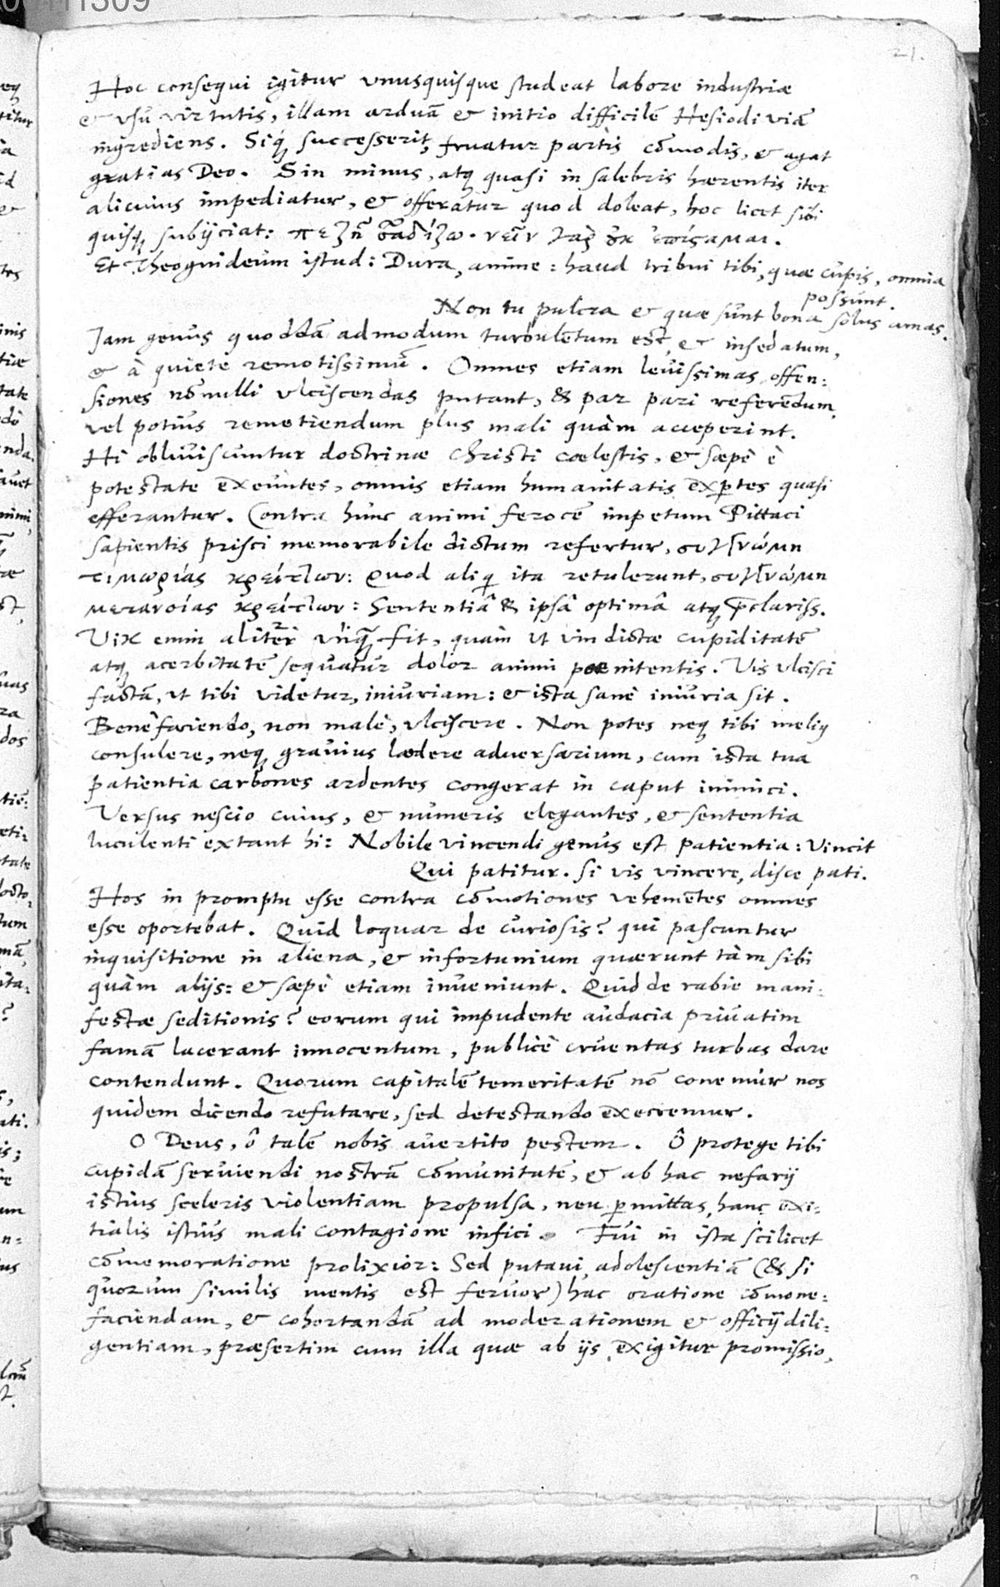 21.
Hoc consequi igitur vnusquisque studeat labore industriæ
& vsu virtutis, illam arduā & initio difficilē Hesiodi viā
ingrediens. Siq; successerit, fruatur partis cōmodis, & agat
gratias Deo. Sin minus, atq; quasi in salebris hærentis iter
alicuius impediatur, & offeratur quod doleat, hoc licet sibi
quisq; subijciat: πεζῆ βαδίζω· νεῖν γὰρ οὐκ ἐπίσαμαι.
Et Theognideum istud: Dura, anime: haud tribui tibi, quæ cupis, omnia
possunt.
Non tu pulcra & quæ sunt bona solus amas.
Jam genus quoddā admodum turbulētum est, & insedatum,
& à quiete remotissimū. Omnes etiam leuissimas offen:
siones nōnulli vlciscendas putant, & par pari referēdum,
vel potius remetiendum plus mali quàm acceperint.
Hi obliuiscuntur doctrinæ Christi cœlestis, & sæpè è
potestate exeuntes, omnis etiam humanitatis expertes quasi
efferantur. Contra hunc animi ferocē impetum Pittaci
sapientis prisci memorabile dictum refertur, συγγνώμη
τιμωρίας κρείττων: Quod aliqui ita retulerunt, συγγνώμη
μετανοίας κρείττων: Sententiâ & ipsâ optimâ atq; p̄clariss.
Vix enim aliter vnq̃ fit, quàm vt vindictæ cupiditatē
atq; acerbitatē sequatur dolor animi pœnitentis. Vis vlcisci
factā, vt tibi videtur, iniuriam: & ista sanè iniuria sit.
Benefaciendo, non malè, vlciscere. Non potes neq; tibi meliꝰ
consulere, neq; grauius lædere aduersarium, cum ista tua
patientia carbones ardentes congerat in caput inimici.
Versus nescio cuius, & numeris elegantes, & sententia
luculenti extant hi: Nobile vincendi genus est patientia: Vincit
Qui patitur. si vis vincere, disce pati.
Hos in promptu esse contra cōmotiones vehemētes omnes
esse oportebat. Quid loquar de curiosis? qui pascuntur
inquisitione in aliena, & infortunium quærunt tàm sibi
quàm alijs: & sæpè etiam inueniunt. Quid de rabie mani:
festæ seditionis? eorum qui impudente audacia priuatim
famā lacerant innocentum, publicè cruentas turbas dare
contendunt. Quorum capitalē temeritatē nō conemur nos
quidem dicendo refutare, sed detestando execremur.
O Deus, ô talē nobis auertito pestem. Ô protege tibi
cupidā seruiendi nostrā cōmunitatē, & ab hac nefarij
istius sceleris violentiam propulsa, neu p̱mittas hanc exi:
tialis istius mali contagione infici. Fui in ista scilicet
cōmemoratione prolixior: Sed putaui adolescentiā (& si
quorum similis mentis est feruor) hac oratione cōmone:
faciendam, & cohortandā ad moderationem & officij dili:
gentiam, præsertim cum illa quæ ab ijs exigitur promissio,